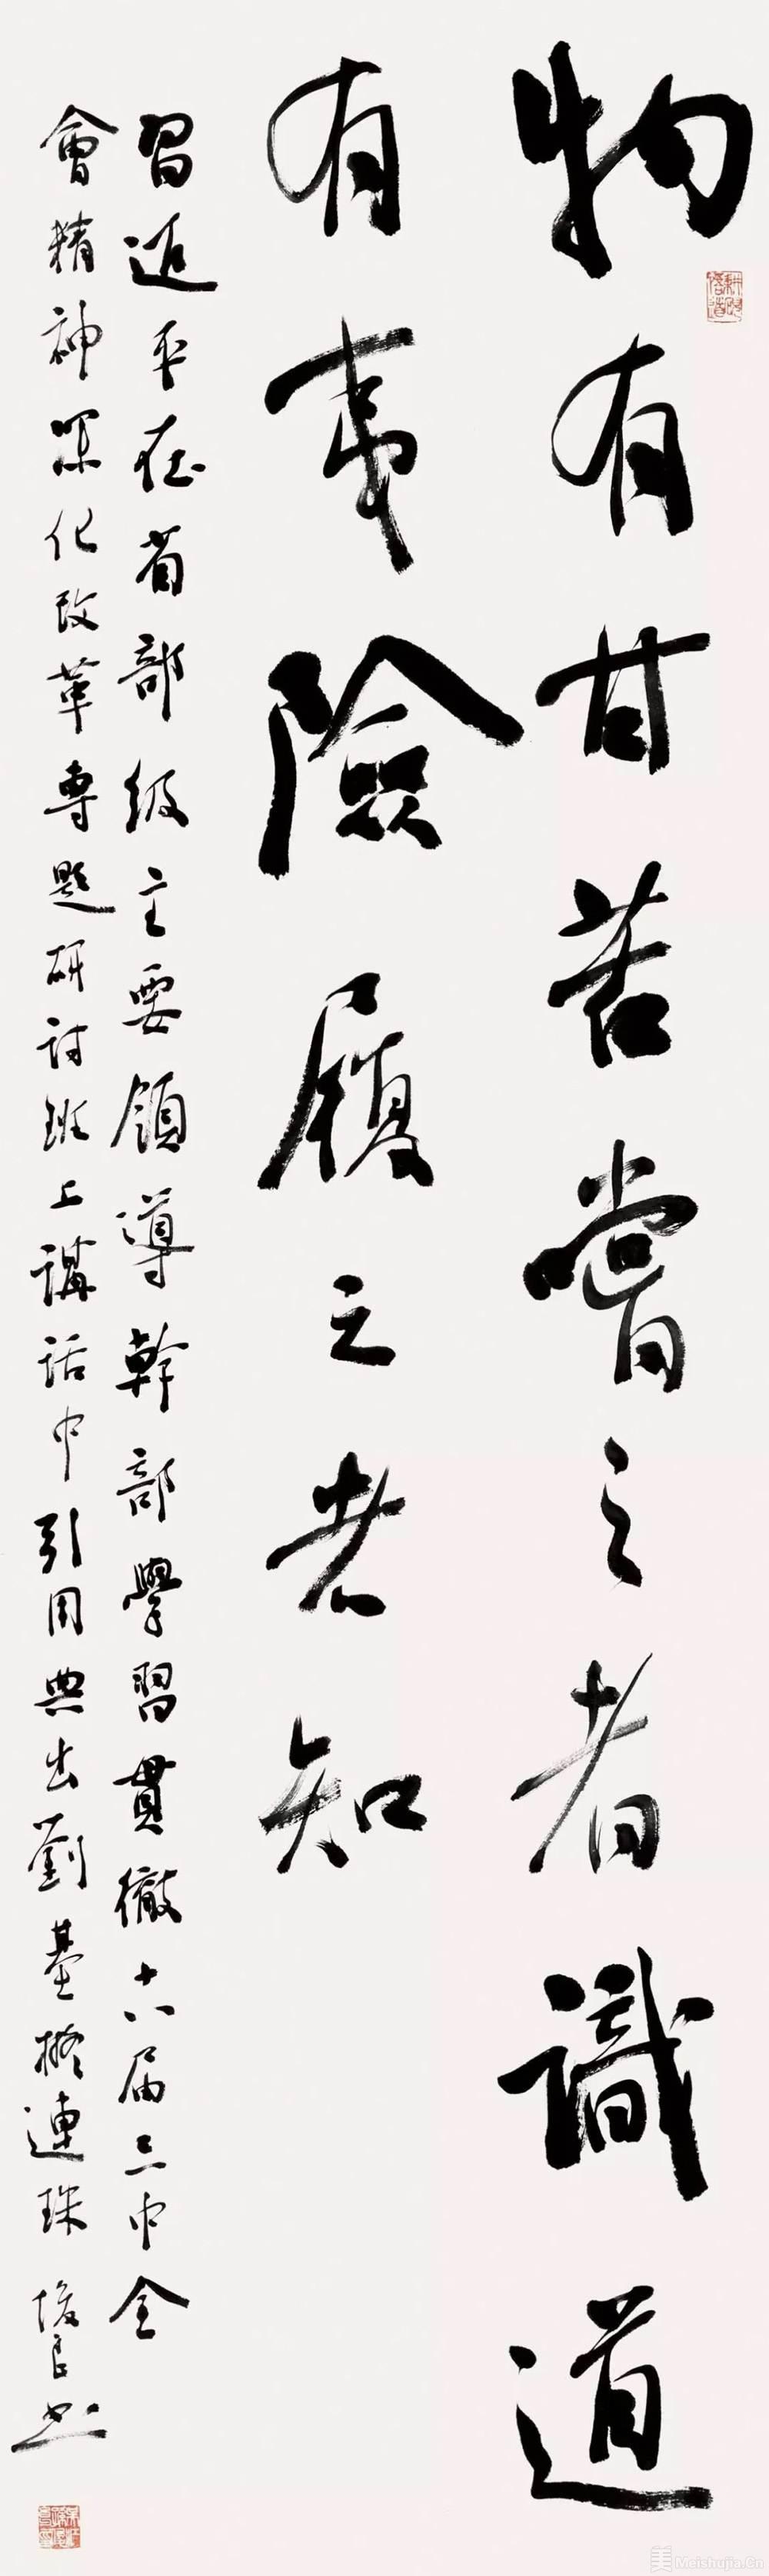 物有甘苦嘗之者識道
有夷險履之者知
習近平在省部級主要領導幹部學習貫徹十八届三中全
會精神深化改革專題研討班上講話中引用典出劉基擬連珠 俊良书
美 Meishujia.Cn